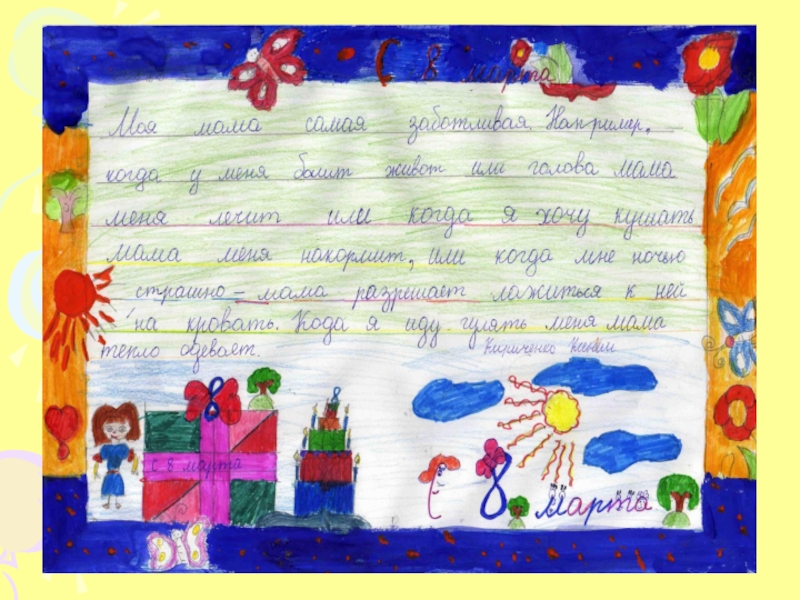 С 8 марта
Моя мама самая заботливая. Например,
когда у меня болит живот или голова мама
меня лечит или когда я хочу кушать
мама меня накормит, или когда мне ночью
страшно – мама разрешает ложиться к ней
на кровать. Кода я иду гулять меня мама
тепло одевает. Кириченко
С 8 марта
С 8 марта